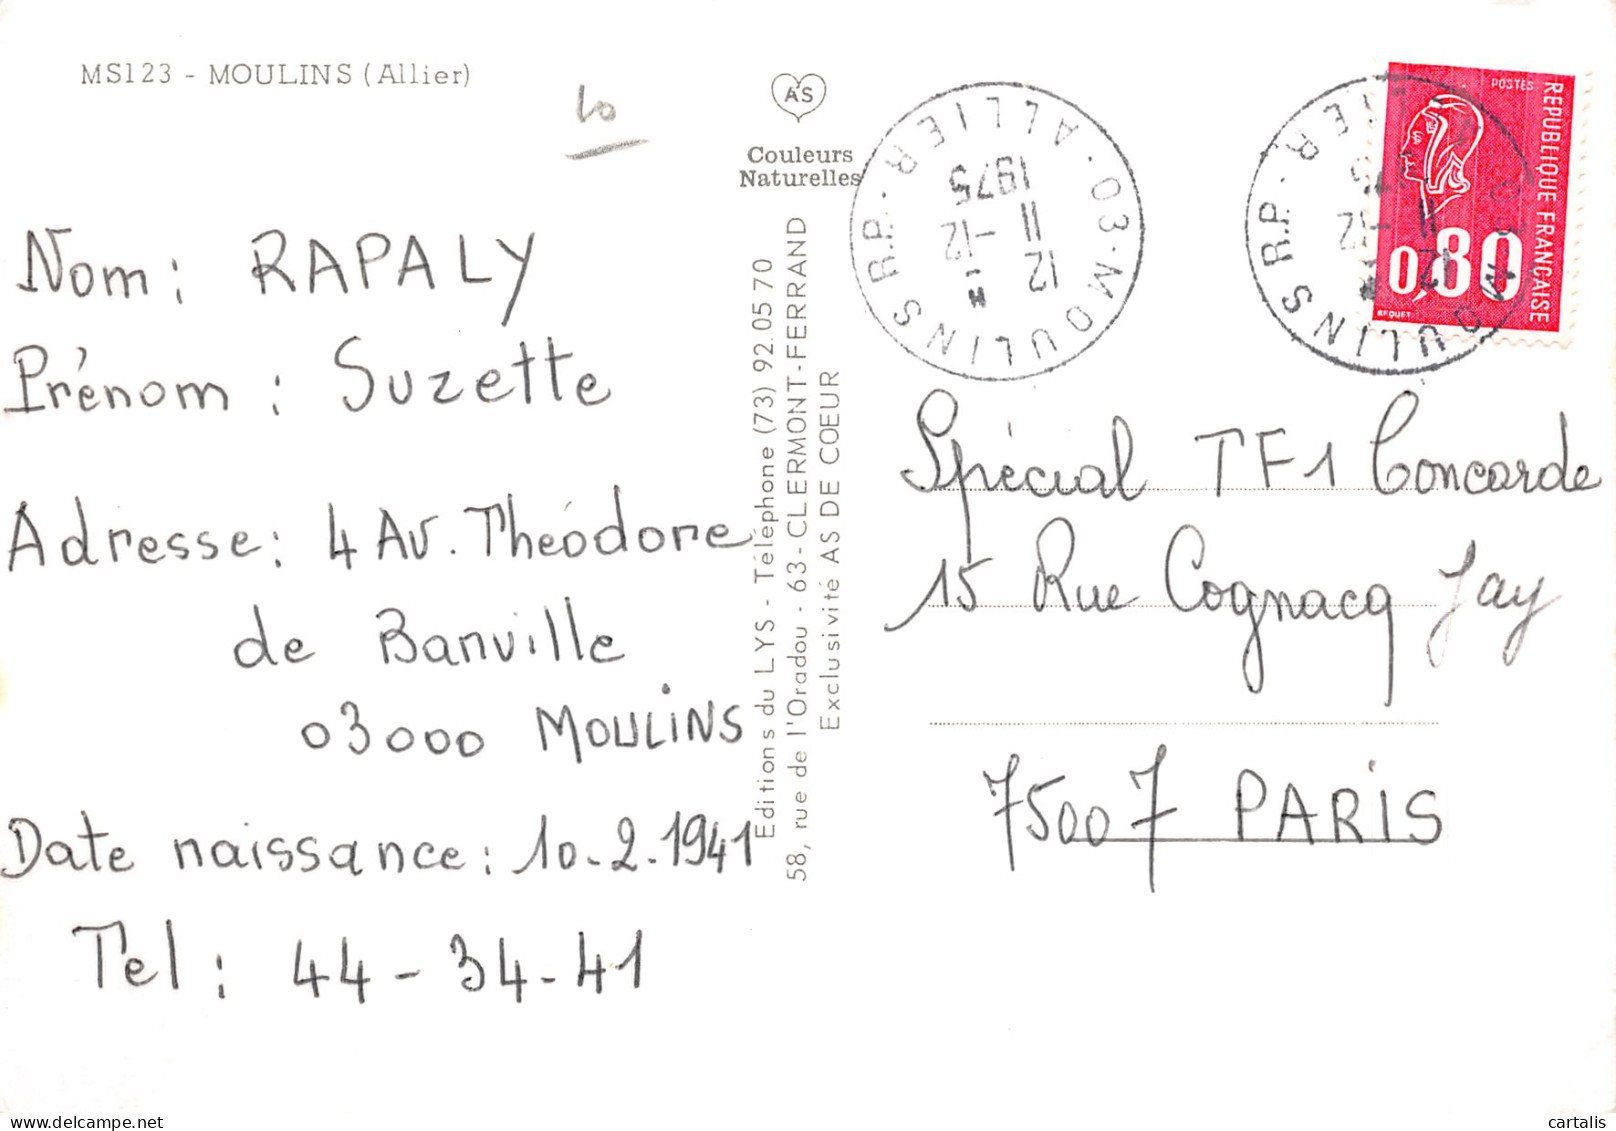 MS123 - MOULINS (Allier)
10
AS
Couleurs
Naturelles
Nom : RAPALY
Prénom : Suzette
Adresse : 4 Av. Théodore
de Banville
03000 MOULINS
Date naissance : 10-2-1941
Tel : 44-34-41
Editions du LYS - Téléphone (73) 92.05 70
58, rue de l'Oradou - 63 - CLERMONT-FERRAND
Exclusivité AS DE COEUR
03 - MOULINS R.P. - ALLIER
12 H
11 -12
1975
03 MOULINS R.P. - ALLIER
12 H
11 -12
1975
POSTES
REPUBLIQUE FRANCAISE
0,80
BEQUET
Spécial TF1 Concorde
15 Rue Cognacq Jay
75007 PARIS
cartalis